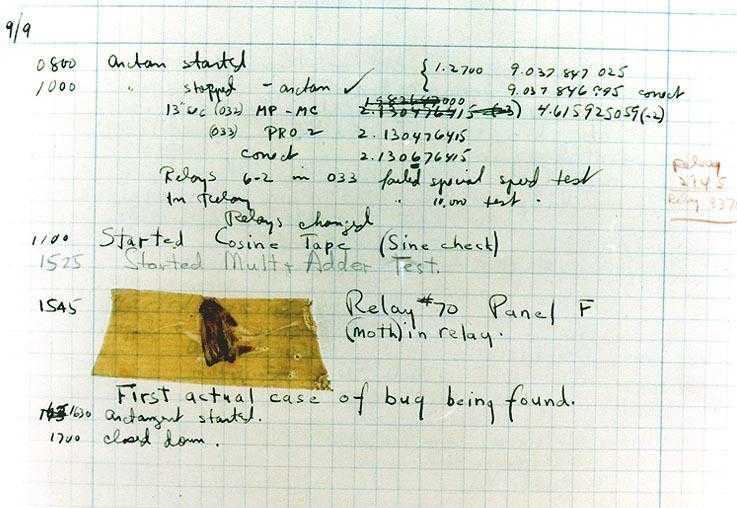 9/9
0800 antan started { 1.2700 9.037 847 025
1000 " stopped - antan ✓ 9.037 846 995 correct
13"uc (032) MP-MC 2.130476415 4.615925059(-2)
(033) PRO 2 2.130476415
correct 2.130676415
Relays 6-2 in 033 failed special speed test
In Relay " 10.000 test.
Relays changed
1100 Started Cosine Tape (Sine check)
1525 Started Mult+Adder Test.
1545 Relay #70 Panel F
(moth) in relay.
First actual case of bug being found.
1630 antangent started.
1700 closed down.